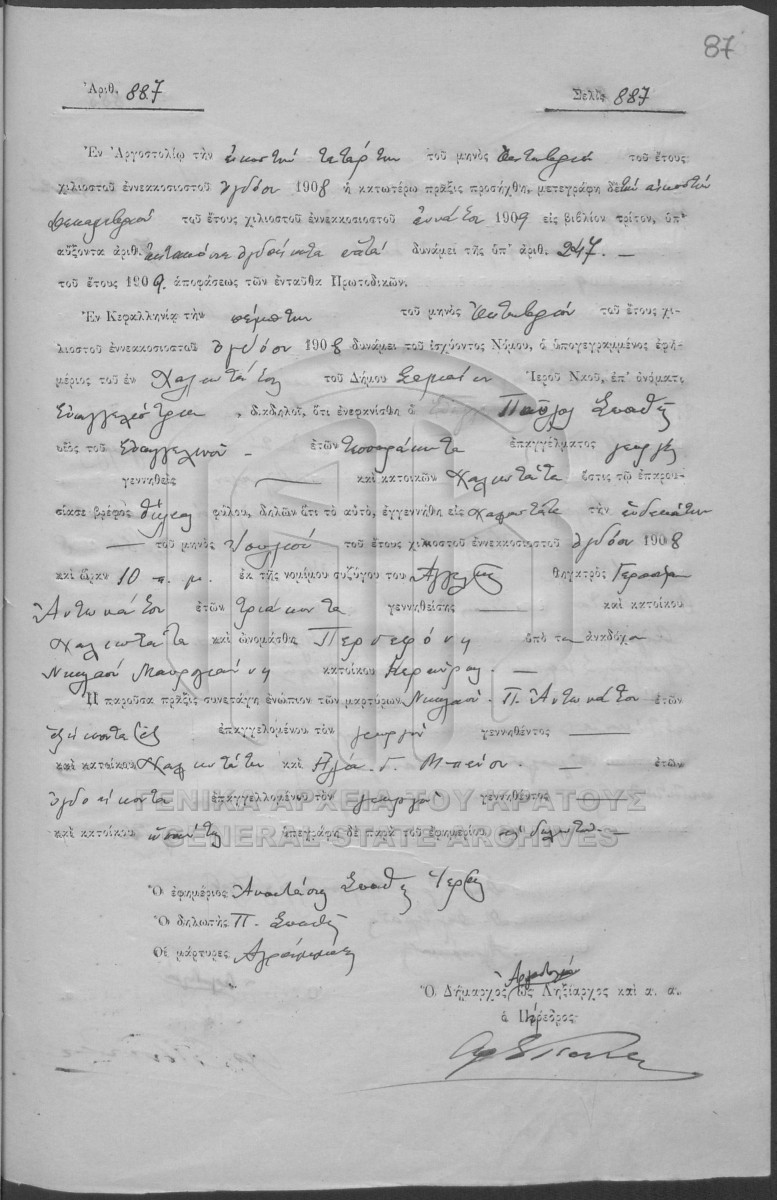 87
Ἀριθ. 887 Σελὶς 887
Ἐν Ἀργοστολίῳ τὴν εἰκοστὴν τετάρτην τοῦ μηνὸς Ὀκτωβρίου τοῦ ἔτους
χιλιοστοῦ ἐννεακοσιοστοῦ ὀγδόου 1908 ἡ κατωτέρω πρᾶξις προσήχθη, μετεγράφη δὲ τὴν εἰκοστὴν
τοῦ ἔτους χιλιοστοῦ ἐννεακοσιοστοῦ ἐννάτου 1909 εἰς βιβλίον τρίτον, ὑπ'
αὔξοντα ἀριθ. ὀκτακόσια ὀγδοήκοντα ἑπτὰ δυνάμει τῆς ὑπ' ἀριθ. 247. —
τοῦ ἔτους 1909. ἀποφάσεως τῶν ἐνταῦθα Πρωτοδικῶν.
Ἐν Κεφαλληνίᾳ τὴν πέμπτην τοῦ μηνὸς Ὀκτωβρίου τοῦ ἔτους χι-
λιοστοῦ ἐννεακοσιοστοῦ ὀγδόου 1908 δυνάμει τοῦ ἰσχύοντος Νόμου, ὁ ὑπογεγραμμένος ἐφη-
μέριος τοῦ ἐν Χαλιωτάτου τοῦ Δήμου Σαμαίων Ἱεροῦ Ναοῦ, ἐπ' ὀνόματι
Εὐαγγελίστρια, διαδηλοῖ, ὅτι ἐνεφανίσθη ὁ Παῦλος Σπαθῆς
υἱὸς τοῦ Εὐαγγελινοῦ - ἐτῶν τεσσαράκοντα ἐπαγγέλματος γεωργὸς
γεννηθεὶς — καὶ κατοικῶν Χαλιωτάτα ὅστις τῷ ἐπαρου-
σίασε βρέφος θήλεος φύλου, δηλῶν ὅτι τὸ αὐτὸ, ἐγεννήθη εἰς Χαλιωτάτα τὴν ἑνδεκάτην
— τοῦ μηνὸς Ἰουλίου τοῦ ἔτους χιλιοστοῦ ἐννεακοσιοστοῦ ὀγδόου 1908
καὶ ὥραν 10 π. μ. ἐκ τῆς νομίμου συζύγου του Ἀγγελικῆς θυγατρὸς Γερασίμου
Ἀντωνάτου ἐτῶν τριάκοντα γεννηθείσης — καὶ κατοίκου
Χαλιωτάτα καὶ ὠνομάσθη Περσεφόνη ὑπὸ τοῦ ἀναδόχου
Νικολάου Μαυρογιάννη κατοίκου Κερκύρας. —
Ἡ παροῦσα πρᾶξις συνετάγη ἐνώπιον τῶν μαρτύρων Νικολάου. Π. Ἀντωνάτου ἐτῶν
ἑξήκοντα ἓξ ἐπαγγελομένου τὸν γεωργὸν γεννηθέντος —
καὶ κατοίκου Χαλιωτάτα καὶ Ἠλία. Γ. — ἐτῶν
ὀγδοήκοντα ἐπαγγελλομένου τὸν γεωργὸν γεννηθέντος —
καὶ κατοίκου ὡσαύτως ὑπεγράφη δὲ παρὰ τοῦ ἐφημερίου καὶ δηλωτοῦ. —
ΓΕΝΙΚΑ ΑΡΧΕΙΑ ΤΟΥ ΚΡΑΤΟΥΣ
GENERAL STATE ARCHIVES
Ὁ ἐφημέριος Ἀναστάσιος Σπαθῆς Ἱερεὺς
Ὁ δηλωτής Π. Σπαθῆς
Οἱ μάρτυρες Ἀγράμματοι
Ὁ Δήμαρχος Ἀργοστολίου ὡς Ληξίαρχος καὶ α. α.
ὁ Πάρεδρος